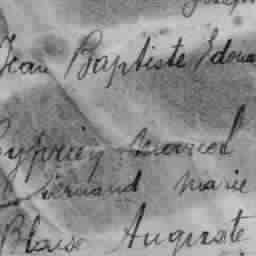 Joseph
Jean Baptiste Edoua
Cyprien Marcel
Fernand Marie
Blaise Auguste